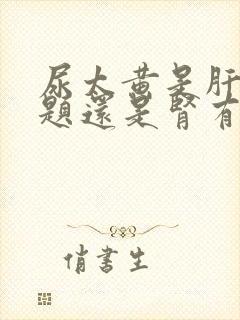 尿太黃是肝
題還是腎有
俏書生